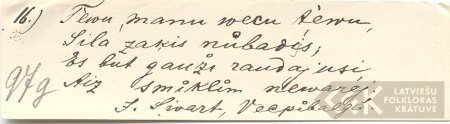 16.) Tewu, manu wecu tewu,
Sila zakis nūbadis;
Es būt gauži raudajusi,
979
Aiz smiklim newarej.
J. Siwart, Vecpibalgā
LATVIEŠU
FOLKLORAS
KRĀTUVE